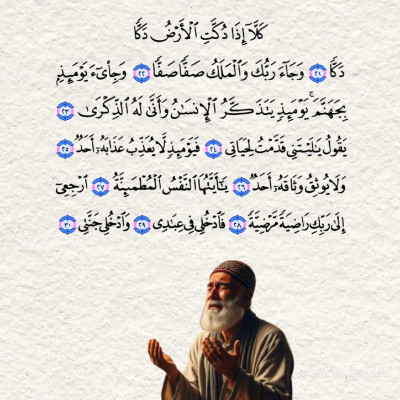 كَلَّآ إِذَا دُكَّتِ ٱلْأَرْضُ دَكًّا
دَكًّا ٢١ وَجَآءَ رَبُّكَ وَٱلْمَلَكُ صَفًّا صَفًّا ٢٢ وَجِا۟ىٓءَ يَوْمَئِذٍۭ
بِجَهَنَّمَ ۚ يَوْمَئِذٍ يَتَذَكَّرُ ٱلْإِنسَٰنُ وَأَنَّىٰ لَهُ ٱلذِّكْرَىٰ ٢٣
يَقُولُ يَٰلَيْتَنِى قَدَّمْتُ لِحَيَاتِى ٢٤ فَيَوْمَئِذٍ لَّا يُعَذِّبُ عَذَابَهُۥٓ أَحَدٌ ٢٥
وَلَا يُوثِقُ وَثَاقَهُۥٓ أَحَدٌ ٢٦ يَٰٓأَيَّتُهَا ٱلنَّفْسُ ٱلْمُطْمَئِنَّةُ ٢٧ ٱرْجِعِىٓ
إِلَىٰ رَبِّكِ رَاضِيَةً مَّرْضِيَّةً ٢٨ فَٱدْخُلِى فِى عِبَٰدِى ٢٩ وَٱدْخُلِى جَنَّتِى ٣٠